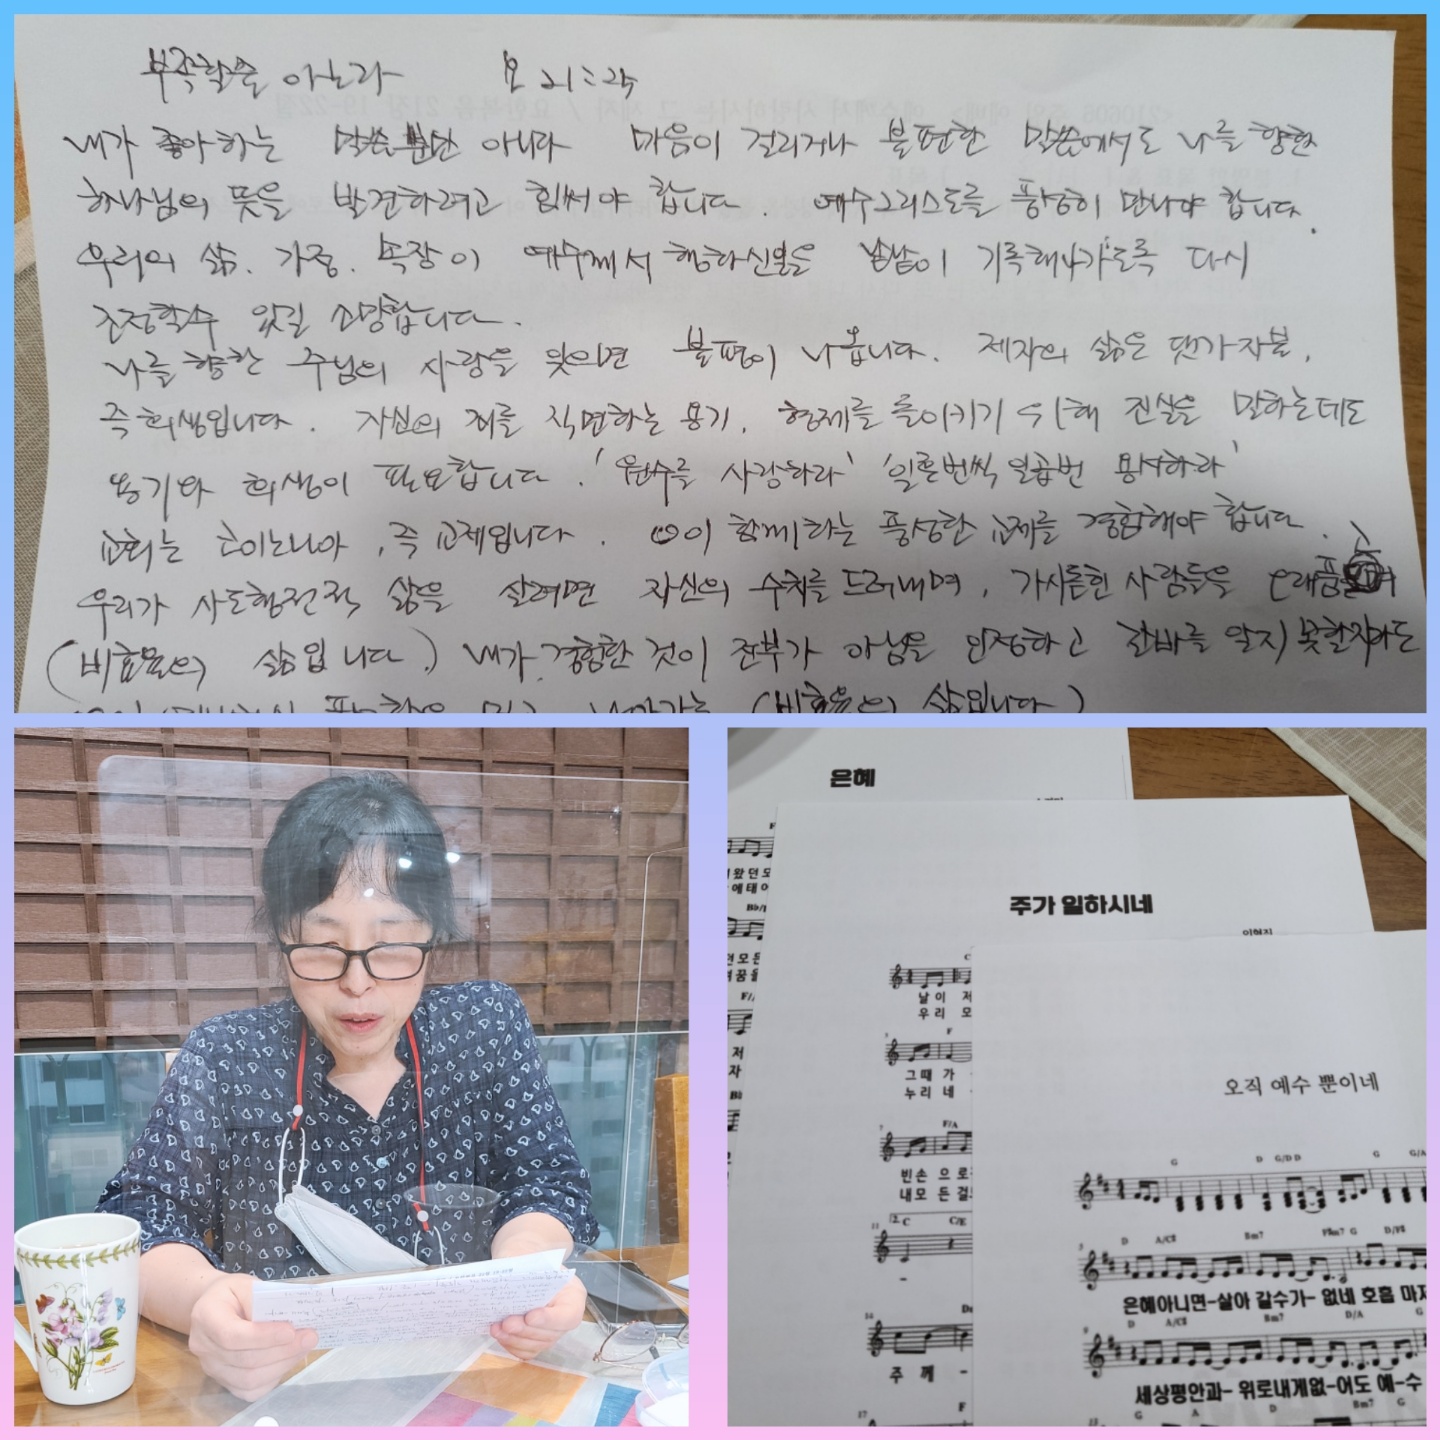 부족함을 아는자 요 21:25
내가 좋아하는 말씀뿐만 아니라 마음이 걸리거나 불편한 말씀에서도 나를 향한
하나님의 뜻을 발견하려고 힘써야 합니다. 예수그리스도를 풍성히 만나야 합니다.
우리의 삶. 가정. 속장이 예수께서 행하신일을 낱낱이 기록해나가도록 다시
조정할수 있길 소망합니다.
나를 향한 주님의 사랑을 잊으면 불평이 나옵니다. 제자의 삶은 댓가지불,
즉 희생입니다. 자신의 죄를 직면하는 용기, 형제를 돌이키기 위해 진실을 말하는데도
용기와 희생이 필요합니다. '원수를 사랑하라' '일흔번씩 일곱번 용서하라'
교회는 코이노니아, 즉 교제입니다. 이 함께하는 풍성한 교제를 경험해야 합니다.
우리가 사도행전적 삶을 살려면 자신의 수치를 드러내며, 가시돋힌 사람들을 오래품
(비효율의 삶입니다.) 내가 경험한 것이 전부가 아님을 인정하고 갈바를 알지 못할지라도
(비효율의 삶입니다)
은혜
왔던모
에태어
Bb/
던모든
꿈을
F/
저
자
주가 일하시네
이혁진
C
날이 저
우리 모
F
그때 가
누리 네
F/A
빈손 으로
내모 든걸
2. C C/E
주 께 -
F
오직 예수 뿐이네
G D G/D D G G/A
D A/C# Bm7 F#m7 G D/F#
은혜아니면-살아 갈수가- 없네 호흡 마저
D A/C# Bm7 D/A G
세상평안과- 위로내게없-어도 예-수
G A D Bm7 G